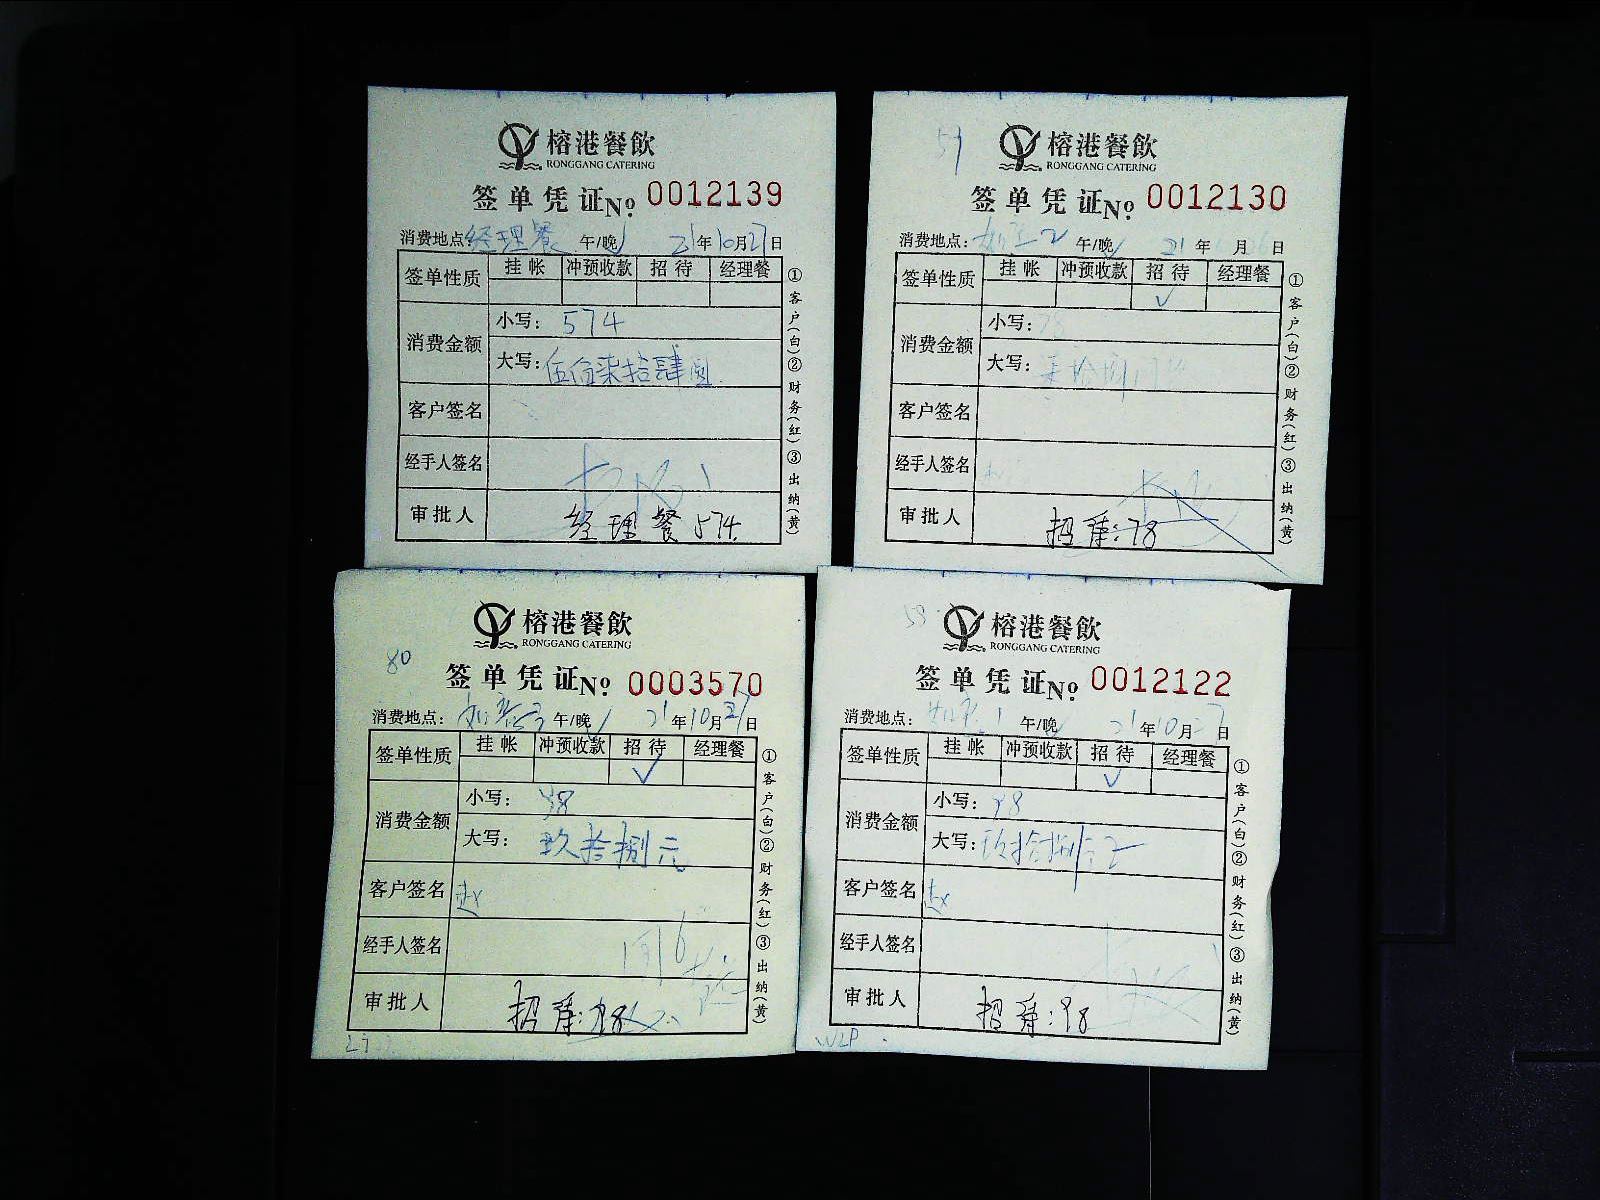 榕港餐飲
RONGGANG CATERING
签单凭证№ 0012139
消费地点:经理餐 午/晚 21年10月27日
签单性质 挂帐 冲预收款 招待 经理餐
消费金额 小写: 574
大写: 伍佰柒拾肆圆
客户签名
经手人签名
审批人 经理餐 574.
①客户(白)②财务(红)③出纳(黄)
榕港餐飲
RONGGANG CATERING
签单凭证№ 0012130
消费地点: 午/晚 21年 月 日
签单性质 挂帐 冲预收款 招待 经理餐
✓
消费金额 小写: 78
大写: 柒拾捌
客户签名
经手人签名
审批人 招待:78
①客户(白)②财务(红)③出纳(黄)
榕港餐飲
RONGGANG CATERING
80
签单凭证№ 0003570
消费地点: 午/晚 21年10月27日
签单性质 挂帐 冲预收款 招待 经理餐
✓
消费金额 小写: 98
大写: 玖拾捌元
客户签名 赵
经手人签名
审批人 招待:98
①客户(白)②财务(红)③出纳(黄)
榕港餐飲
RONGGANG CATERING
59
签单凭证№ 0012122
消费地点: 午/晚 21年10月27日
签单性质 挂帐 冲预收款 招待 经理餐
✓
消费金额 小写: 98
大写: 玖拾捌
客户签名 赵
经手人签名
审批人 招待:98
①客户(白)②财务(红)③出纳(黄)
WLP